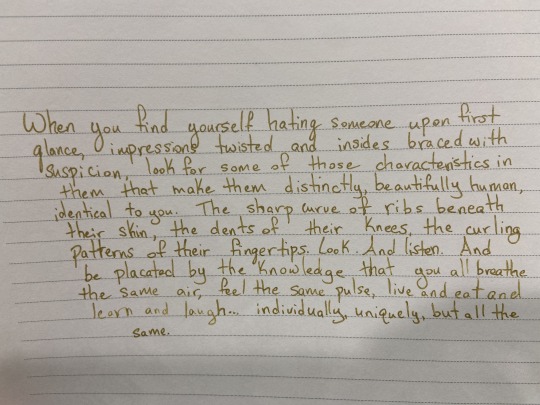 When you find yourself hating someone upon first
glance, impressions twisted and insides braced with
suspicion, look for some of those characteristics in
them that make them distinctly, beautifully human,
identical to you. The sharp curve of ribs beneath
their skin, the dents of their knees, the curling
patterns of their fingertips. Look. And listen. And
be placated by the knowledge that you all breathe
the same air, feel the same pulse, live and eat and
learn and laugh... individually, uniquely, but all the
same.